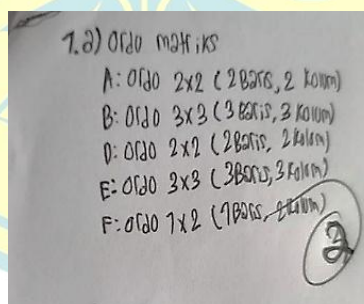 1.a) Ordo matriks
A: Ordo 2x2 (2Baris, 2 Kolom)
B: Ordo 3x3 (3 Baris, 3 Kolom)
D: Ordo 2x2 (2Baris, 2Kolom)
E: Ordo 3x3 (3Baris, 3 Kolom)
F: Ordo 1x2 (1Baris, 2Kolom)
2